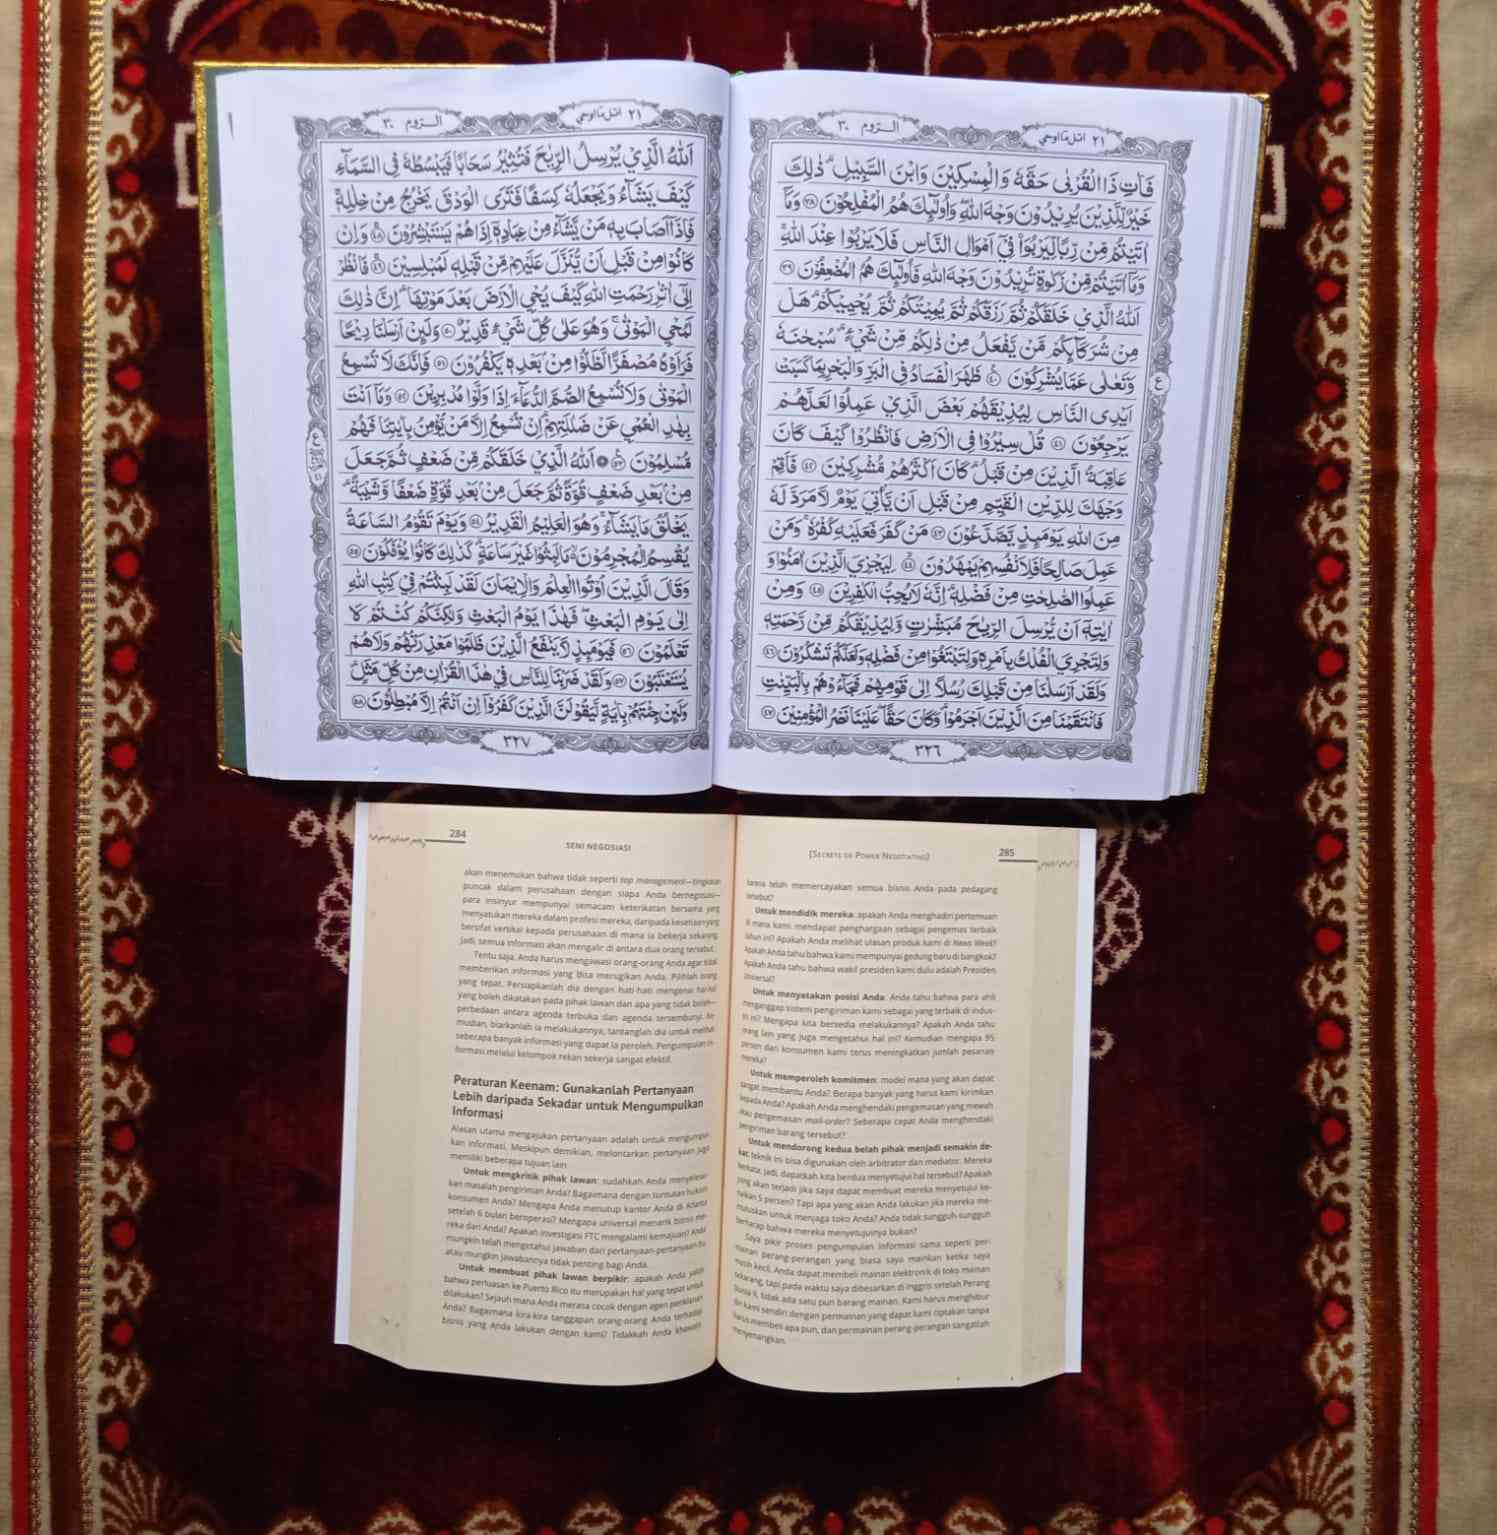 ٢١ اتل مااوحي
الروم ٣٠
فَاٰتِ ذَا الْقُرْبٰى حَقَّهٗ وَالْمِسْكِيْنَ وَابْنَ السَّبِيْلِۗ ذٰلِكَ
خَيْرٌ لِّلَّذِيْنَ يُرِيْدُوْنَ وَجْهَ اللّٰهِ وَاُولٰۤىِٕكَ هُمُ الْمُفْلِحُوْنَ ٣٨ وَمَآ
اٰتَيْتُمْ مِّنْ رِّبًا لِّيَرْبُوَا۠ فِيْٓ اَمْوَالِ النَّاسِ فَلَا يَرْبُوْا عِنْدَ اللّٰهِ
وَمَآ اٰتَيْتُمْ مِّنْ زَكٰوةٍ تُرِيْدُوْنَ وَجْهَ اللّٰهِ فَاُولٰۤىِٕكَ هُمُ الْمُضْعِفُوْنَ ٣٩
اَللّٰهُ الَّذِيْ خَلَقَكُمْ ثُمَّ رَزَقَكُمْ ثُمَّ يُمِيْتُكُمْ ثُمَّ يُحْيِيْكُمْۗ هَلْ
مِنْ شُرَكَاۤىِٕكُمْ مَّنْ يَّفْعَلُ مِنْ ذٰلِكُمْ مِّنْ شَيْءٍۗ سُبْحٰنَهٗ
وَتَعٰلٰى عَمَّا يُشْرِكُوْنَ ٤٠ ظَهَرَ الْفَسَادُ فِى الْبَرِّ وَالْبَحْرِ بِمَا كَسَبَتْ
اَيْدِى النَّاسِ لِيُذِيْقَهُمْ بَعْضَ الَّذِيْ عَمِلُوْا لَعَلَّهُمْ
يَرْجِعُوْنَ ٤١ قُلْ سِيْرُوْا فِى الْاَرْضِ فَانْظُرُوْا كَيْفَ كَانَ
عَاقِبَةُ الَّذِيْنَ مِنْ قَبْلُۗ كَانَ اَكْثَرُهُمْ مُّشْرِكِيْنَ ٤٢ فَاَقِمْ
وَجْهَكَ لِلدِّيْنِ الْقَيِّمِ مِنْ قَبْلِ اَنْ يَّأْتِيَ يَوْمٌ لَّا مَرَدَّ لَهٗ
مِنَ اللّٰهِ يَوْمَىِٕذٍ يَّصَّدَّعُوْنَ ٤٣ مَنْ كَفَرَ فَعَلَيْهِ كُفْرُهٗۚ وَمَنْ
عَمِلَ صَالِحًا فَلِاَنْفُسِهِمْ يَمْهَدُوْنَ ٤٤ لِيَجْزِيَ الَّذِيْنَ اٰمَنُوْا وَ
عَمِلُوا الصّٰلِحٰتِ مِنْ فَضْلِهٖۗ اِنَّهٗ لَا يُحِبُّ الْكٰفِرِيْنَ ٤٥ وَمِنْ
اٰيٰتِهٖٓ اَنْ يُّرْسِلَ الرِّيٰحَ مُبَشِّرٰتٍ وَّلِيُذِيْقَكُمْ مِّنْ رَّحْمَتِهٖ
وَلِتَجْرِيَ الْفُلْكُ بِاَمْرِهٖ وَلِتَبْتَغُوْا مِنْ فَضْلِهٖ وَلَعَلَّكُمْ تَشْكُرُوْنَ ٤٦
وَلَقَدْ اَرْسَلْنَا مِنْ قَبْلِكَ رُسُلًا اِلٰى قَوْمِهِمْ فَجَاۤءُوْهُمْ بِالْبَيِّنٰتِ
فَانْتَقَمْنَا مِنَ الَّذِيْنَ اَجْرَمُوْاۗ وَكَانَ حَقًّا عَلَيْنَا نَصْرُ الْمُؤْمِنِيْنَ ٤٧
ع
٣٢٦
٢١ اتل مااوحي
الروم ٣٠
اَللّٰهُ الَّذِيْ يُرْسِلُ الرِّيٰحَ فَتُثِيْرُ سَحَابًا فَيَبْسُطُهٗ فِى السَّمَاۤءِ
كَيْفَ يَشَاۤءُ وَيَجْعَلُهٗ كِسَفًا فَتَرَى الْوَدْقَ يَخْرُجُ مِنْ خِلٰلِهٖۚ
فَاِذَآ اَصَابَ بِهٖ مَنْ يَّشَاۤءُ مِنْ عِبَادِهٖٓ اِذَا هُمْ يَسْتَبْشِرُوْنَ ٤٨ وَاِنْ
كَانُوْا مِنْ قَبْلِ اَنْ يُّنَزَّلَ عَلَيْهِمْ مِّنْ قَبْلِهٖ لَمُبْلِسِيْنَ ٤٩ فَانْظُرْ
اِلٰٓى اٰثٰرِ رَحْمَتِ اللّٰهِ كَيْفَ يُحْيِ الْاَرْضَ بَعْدَ مَوْتِهَاۗ اِنَّ ذٰلِكَ
لَمُحْيِ الْمَوْتٰىۚ وَهُوَ عَلٰى كُلِّ شَيْءٍ قَدِيْرٌ ٥٠ وَلَىِٕنْ اَرْسَلْنَا رِيْحًا
فَرَاَوْهُ مُصْفَرًّا لَّظَلُّوْا مِنْۢ بَعْدِهٖ يَكْفُرُوْنَ ٥١ فَاِنَّكَ لَا تُسْمِعُ
الْمَوْتٰى وَلَا تُسْمِعُ الصُّمَّ الدُّعَاۤءَ اِذَا وَلَّوْا مُدْبِرِيْنَ ٥٢ وَمَآ اَنْتَ
بِهٰدِ الْعُمْيِ عَنْ ضَلٰلَتِهِمْۗ اِنْ تُسْمِعُ اِلَّا مَنْ يُّؤْمِنُ بِاٰيٰتِنَا فَهُمْ
مُّسْلِمُوْنَ ٥٣ ۞ اَللّٰهُ الَّذِيْ خَلَقَكُمْ مِّنْ ضَعْفٍ ثُمَّ جَعَلَ
مِنْۢ بَعْدِ ضَعْفٍ قُوَّةً ثُمَّ جَعَلَ مِنْۢ بَعْدِ قُوَّةٍ ضَعْفًا وَّشَيْبَةًۗ
يَخْلُقُ مَا يَشَاۤءُۚ وَهُوَ الْعَلِيْمُ الْقَدِيْرُ ٥٤ وَيَوْمَ تَقُوْمُ السَّاعَةُ
يُقْسِمُ الْمُجْرِمُوْنَ مَا لَبِثُوْا غَيْرَ سَاعَةٍۗ كَذٰلِكَ كَانُوْا يُؤْفَكُوْنَ ٥٥
وَقَالَ الَّذِيْنَ اُوْتُوا الْعِلْمَ وَالْاِيْمَانَ لَقَدْ لَبِثْتُمْ فِيْ كِتٰبِ اللّٰهِ
اِلٰى يَوْمِ الْبَعْثِۖ فَهٰذَا يَوْمُ الْبَعْثِ وَلٰكِنَّكُمْ كُنْتُمْ لَا
تَعْلَمُوْنَ ٥٦ فَيَوْمَىِٕذٍ لَّا يَنْفَعُ الَّذِيْنَ ظَلَمُوْا مَعْذِرَتُهُمْ وَلَا هُمْ
يُسْتَعْتَبُوْنَ ٥٧ وَلَقَدْ ضَرَبْنَا لِلنَّاسِ فِيْ هٰذَا الْقُرْاٰنِ مِنْ كُلِّ مَثَلٍۗ
وَلَىِٕنْ جِئْتَهُمْ بِاٰيَةٍ لَّيَقُوْلَنَّ الَّذِيْنَ كَفَرُوْٓا اِنْ اَنْتُمْ اِلَّا مُبْطِلُوْنَ ٥٨
٣٢٧
284
SENI NEGOSIASI
akan menemukan bahwa tidak seperti top management—tingkatan
puncak dalam perusahaan dengan siapa Anda bernegosiasi—
para insinyur mempunyai semacam keterikatan bersama yang
menyatukan mereka dalam profesi mereka, daripada kesetiaan yang
bersifat vertikal kepada perusahaan di mana ia bekerja sekarang.
Jadi, semua informasi akan mengalir di antara dua orang tersebut.
Tentu saja, Anda harus mengawasi orang-orang Anda agar tidak
memberikan informasi yang bisa merugikan Anda. Pilihlah orang
yang tepat. Persiapkanlah dia dengan hati-hati mengenai hal-hal
yang boleh dikatakan pada pihak lawan dan apa yang tidak boleh—
perbedaan antara agenda terbuka dan agenda tersembunyi. Ke-
mudian, biarkanlah ia melakukannya, tantanglah dia untuk melihat
seberapa banyak informasi yang dapat ia peroleh. Pengumpulan in-
formasi melalui kelompok rekan sekerja sangat efektif.
Peraturan Keenam: Gunakanlah Pertanyaan
Lebih daripada Sekadar untuk Mengumpulkan
Informasi
Alasan utama mengajukan pertanyaan adalah untuk mengumpul-
kan informasi. Meskipun demikian, melontarkan pertanyaan juga
memiliki beberapa tujuan lain:
Untuk mengkritik pihak lawan: sudahkah Anda menyelesai-
kan masalah pengiriman Anda? Bagaimana dengan tuntutan hukum
konsumen Anda? Mengapa Anda menutup kantor Anda di Atlanta
setelah 6 bulan beroperasi? Mengapa universal menarik bisnis me-
reka dari Anda? Apakah investigasi FTC mengalami kemajuan? Anda
mungkin telah mengetahui jawaban dari pertanyaan-pertanyaan itu
atau mungkin jawabannya tidak penting bagi Anda.
Untuk membuat pihak lawan berpikir: apakah Anda yakin
bahwa perluasan ke Puerto Rico itu merupakan hal yang tepat untuk
dilakukan? Sejauh mana Anda merasa cocok dengan agen periklanan
Anda? Bagaimana kira-kira tanggapan orang-orang Anda terhadap
bisnis yang Anda lakukan dengan kami? Tidakkah Anda khawatir
[SECRETS OF POWER NEGOTIATING]
285
karena telah memercayakan semua bisnis Anda pada pedagang
tersebut?
Untuk mendidik mereka: apakah Anda menghadiri pertemuan
di mana kami mendapat penghargaan sebagai pengemas terbaik
tahun ini? Apakah Anda melihat ulasan produk kami di News Week?
Apakah Anda tahu bahwa kami mempunyai gedung baru di bangkok?
Apakah Anda tahu bahwa wakil presiden kami dulu adalah Presiden
Universal?
Untuk menyatakan posisi Anda: Anda tahu bahwa para ahli
menganggap sistem pengiriman kami sebagai yang terbaik di indus-
tri ini? Mengapa kita bersedia melakukannya? Apakah Anda tahu
orang lain yang juga mengetahui hal ini? Kemudian mengapa 95
persen dari konsumen kami terus meningkatkan jumlah pesanan
mereka?
Untuk memperoleh komitmen: model mana yang akan dapat
sangat membantu Anda? Berapa banyak yang harus kami kirimkan
kepada Anda? Apakah Anda menghendaki pengemasan yang mewah
atau pengemasan mail-order? Seberapa cepat Anda menghendaki
pengiriman barang tersebut?
Untuk mendorong kedua belah pihak menjadi semakin de-
kat: teknik ini bisa digunakan oleh arbitrator dan mediator. Mereka
berkata, jadi, dapatkah kita berdua menyetujui hal tersebut? Apakah
yang akan terjadi jika saya dapat membuat mereka menyetujui ke-
naikan 5 persen? Tapi apa yang akan Anda lakukan jika mereka me-
mutuskan untuk menjaga toko Anda? Anda tidak sungguh-sungguh
berharap bahwa mereka menyetujuinya bukan?
Saya pikir proses pengumpulan informasi sama seperti per-
mainan perang-perangan yang biasa saya mainkan ketika saya
masih kecil. Anda dapat membeli mainan elektronik di toko mainan
sekarang, tapi pada waktu saya dibesarkan di Inggris setelah Perang
Dunia II, tidak ada satu pun barang mainan. Kami harus menghibur
diri kami sendiri dengan permainan yang dapat kami ciptakan tanpa
harus membeli apa pun, dan permainan perang-perangan sangatlah
menyenangkan.